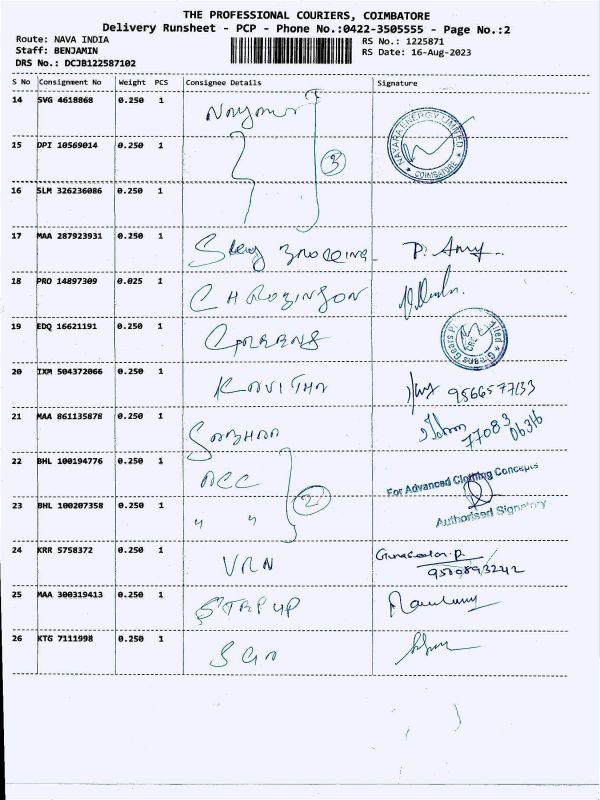 THE PROFESSIONAL COURIERS, COIMBATORE
Delivery Runsheet - PCP - Phone No.:0422-3505555 - Page No.:2
Route: NAVA INDIA
Staff: BENJAMIN
DRS No.: DCJB122587102
RS No.: 1225871
RS Date: 16-Aug-2023
S No Consignment No Weight PCS Consignee Details Signature
14 SVG 4618868 0.250 1 Nayara
NAYARA ENERGY LIMITED * COIMBATORE *
15 DPI 10569014 0.250 1 3
16 SLM 326236086 0.250 1
17 MAA 287923931 0.250 1 Sky Broking P. Amy
18 PRO 14897309 0.025 1 CH ROBINSON
19 EDQ 16621191 0.250 1 Greens
20 IXM 504372066 0.250 1 KAVITHA 9566577133
21 MAA 861135878 0.250 1 77083 06316
22 BHL 100194776 0.250 1 ACC
For Advanced Clothing Concepts
23 BHL 100207358 0.250 1 " " 2
Authorised Signatory
24 KRR 5758372 0.250 1 VRN
25 MAA 300319413 0.250 1 STEP UP
26 KTG 7111998 0.250 1